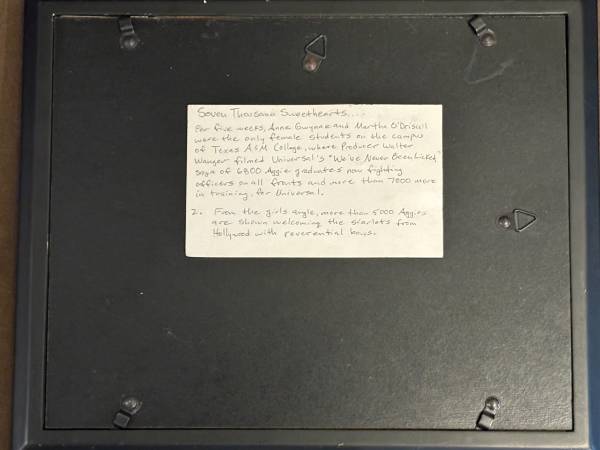 Seven Thousand Sweethearts....
For five weeks, Anne Gwynne and Martha O'Driscoll
were the only female students on the campus
of Texas A&M College, where Producer Walter
Wanger filmed Universal's "We've Never Been Licked,"
saga of 6800 Aggie graduates now fighting
officers on all fronts and more than 7000 more
in training, for Universal.
2. From the girls angle, more than 5000 Aggies
are shown welcoming the starlets from
Hollywood with reverential bows.